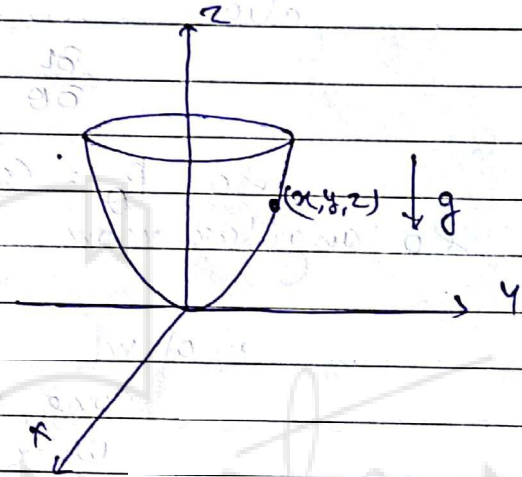 z
(x,y,z)
g
y
x